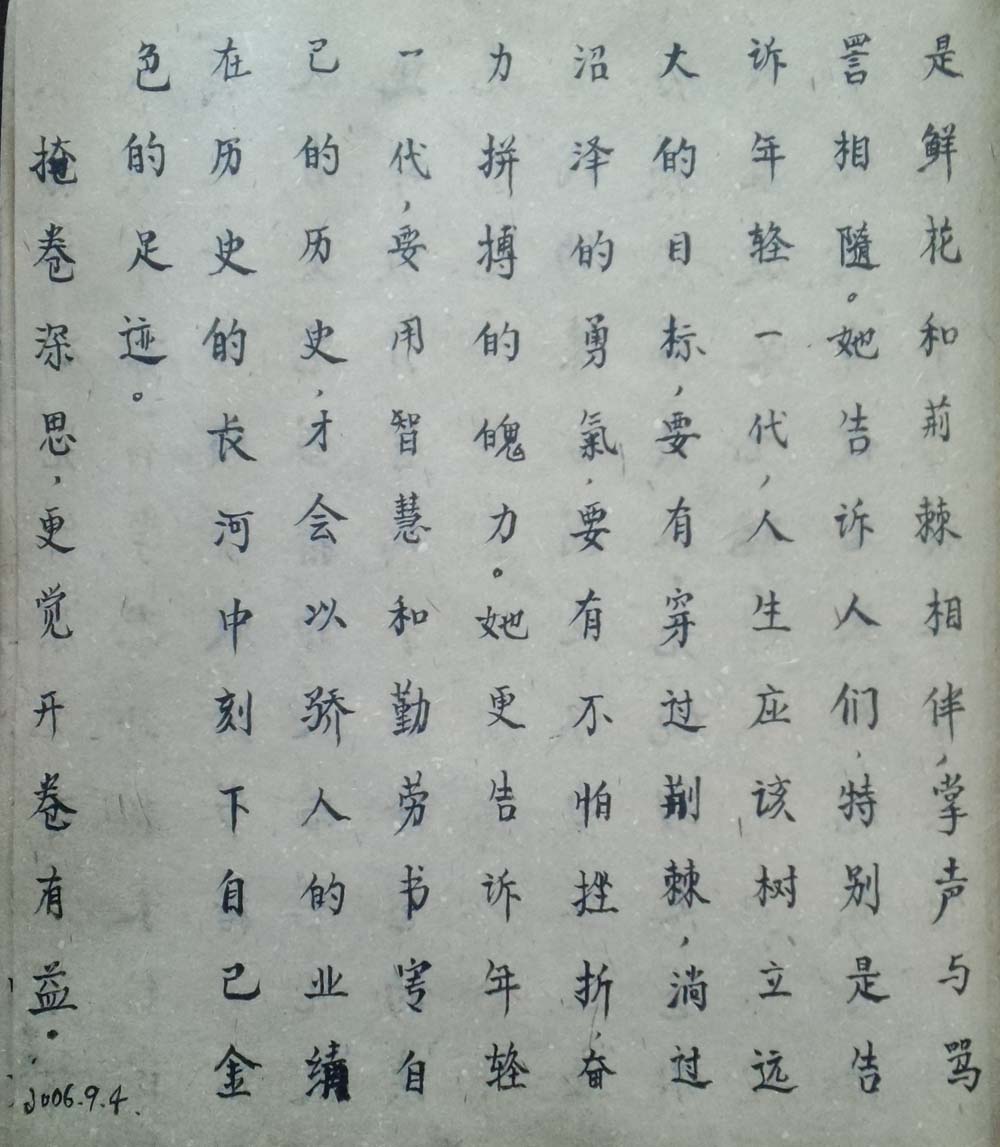 是鲜花和荆棘相伴，掌声与骂
詈相隨。她告诉人们，特别是告
诉年轻一代，人生应该树立远
大的目标，要有穿过荆棘，淌过
沼泽的勇氣，要有不怕挫折，奋
力拼搏的魄力。她更告诉年轻
一代，要用智慧和勤劳书写自
己的历史，才会以骄人的业绩
在历史的长河中刻下自己金
色的足迹。
掩卷深思，更觉开卷有益。
2006.9.4.